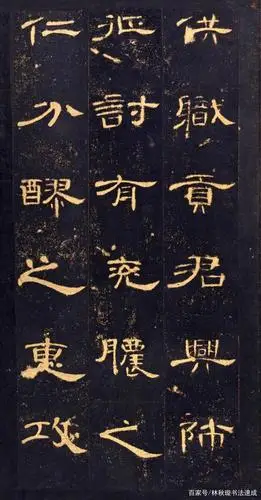 供職貢君興師
征討有兗膿之
仁分醪之惠攻
百家号/林秋璇书法速成